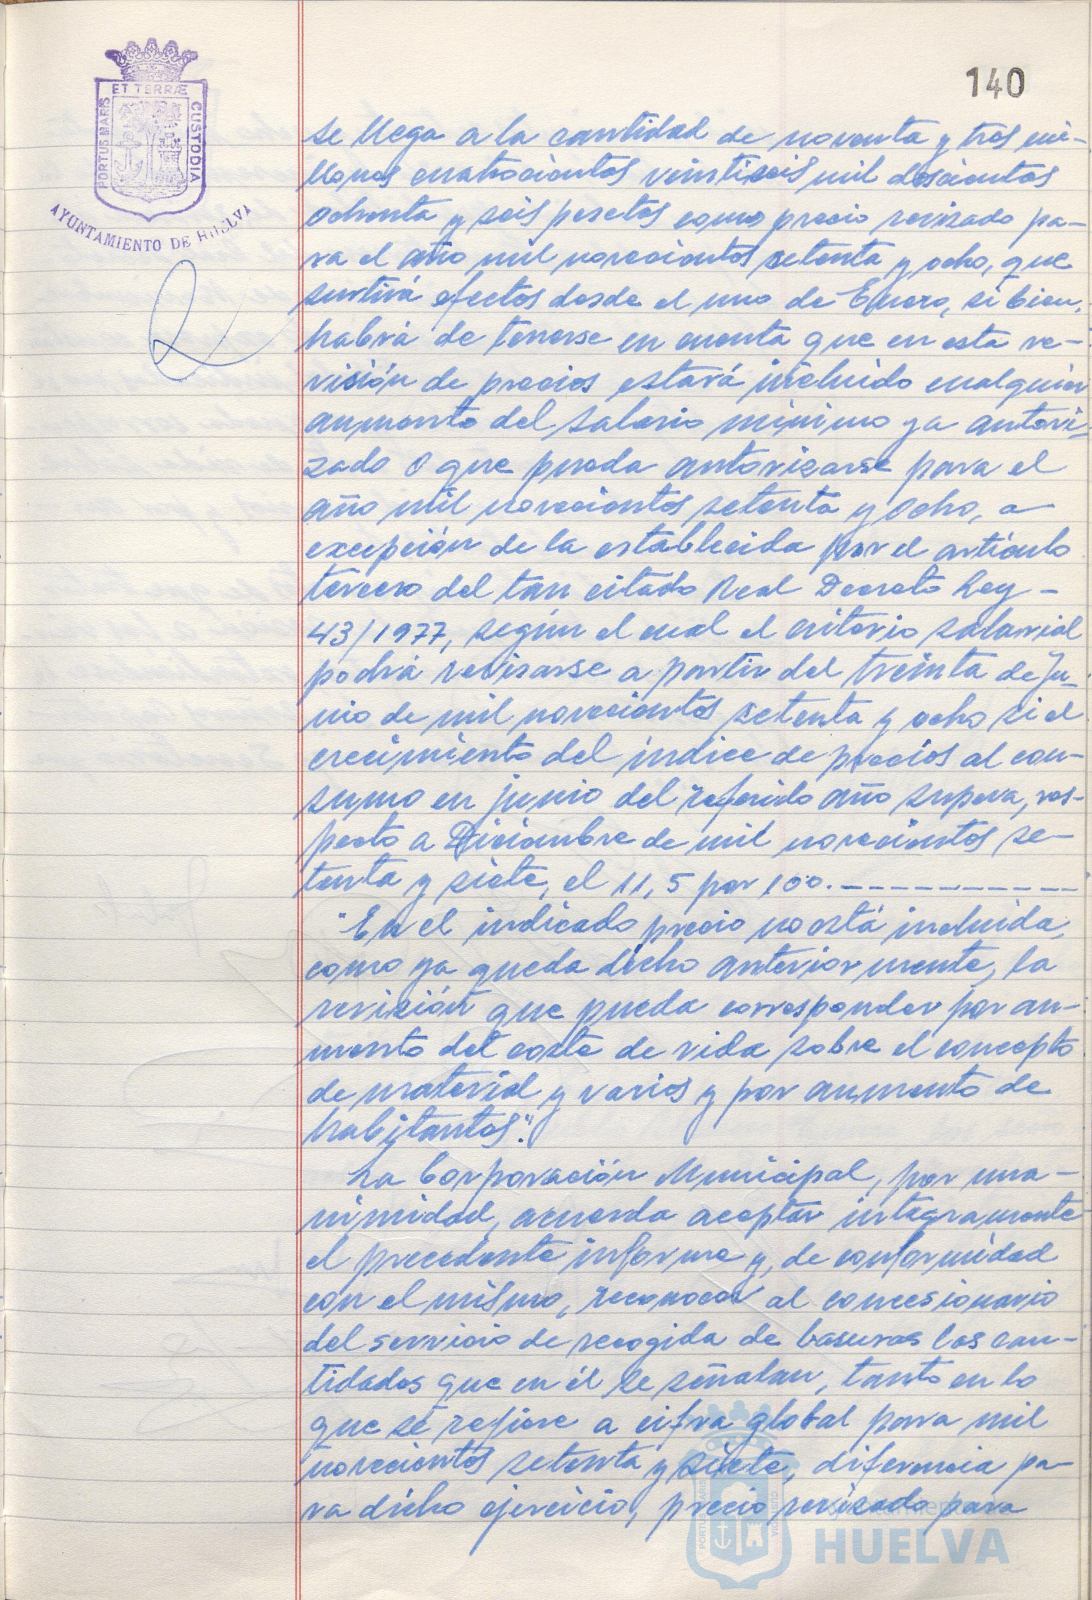 140
PORTUS MARIS
ET TERRÆ
CUSTODIA
AYUNTAMIENTO DE HUELVA
se llega a la cantidad de noventa y tres mi-
llones cuatrocientos veintiseis mil doscientos
ochenta y seis pesetas como precio revisado pa-
ra el año mil novecientos setenta y ocho, que
surtirá efectos desde el uno de Enero, si bien,
habrá de tenerse en cuenta que en esta re-
visión de precios estará incluido cualquier
aumento del salario mínimo ya autori-
zado o que pueda autorizarse para el
año mil novecientos setenta y ocho, a
excepción de la establecida por el artículo
tercero del tan citado Real Decreto Ley -
43/1977, según el cual el criterio salarial
podrá revisarse a partir del treinta de Ju-
nio de mil novecientos setenta y ocho si el
crecimiento del índice de precios al con-
sumo en junio del referido año supera, res-
pecto a Diciembre de mil novecientos se-
tenta y siete, el 11,5 por 100. - - - - - - - - - -
"En el indicado precio no está incluida,
como ya queda dicho anteriormente, la
revisión que pueda corresponder por au-
mento del coste de vida sobre el concepto
de material y varios y por aumento de
habitantes".
La Corporación Municipal, por una-
nimidad, acuerda aceptar íntegramente
el precedente informe y, de conformidad
con el mismo, reconocer al concesionario
del servicio de recogida de basuras las can-
tidades que en él se señalan, tanto en lo
que se refiere a cifra global para mil
novecientos setenta y siete, diferencia pa-
ra dicho ejercicio, precio revisado para
HUELVA